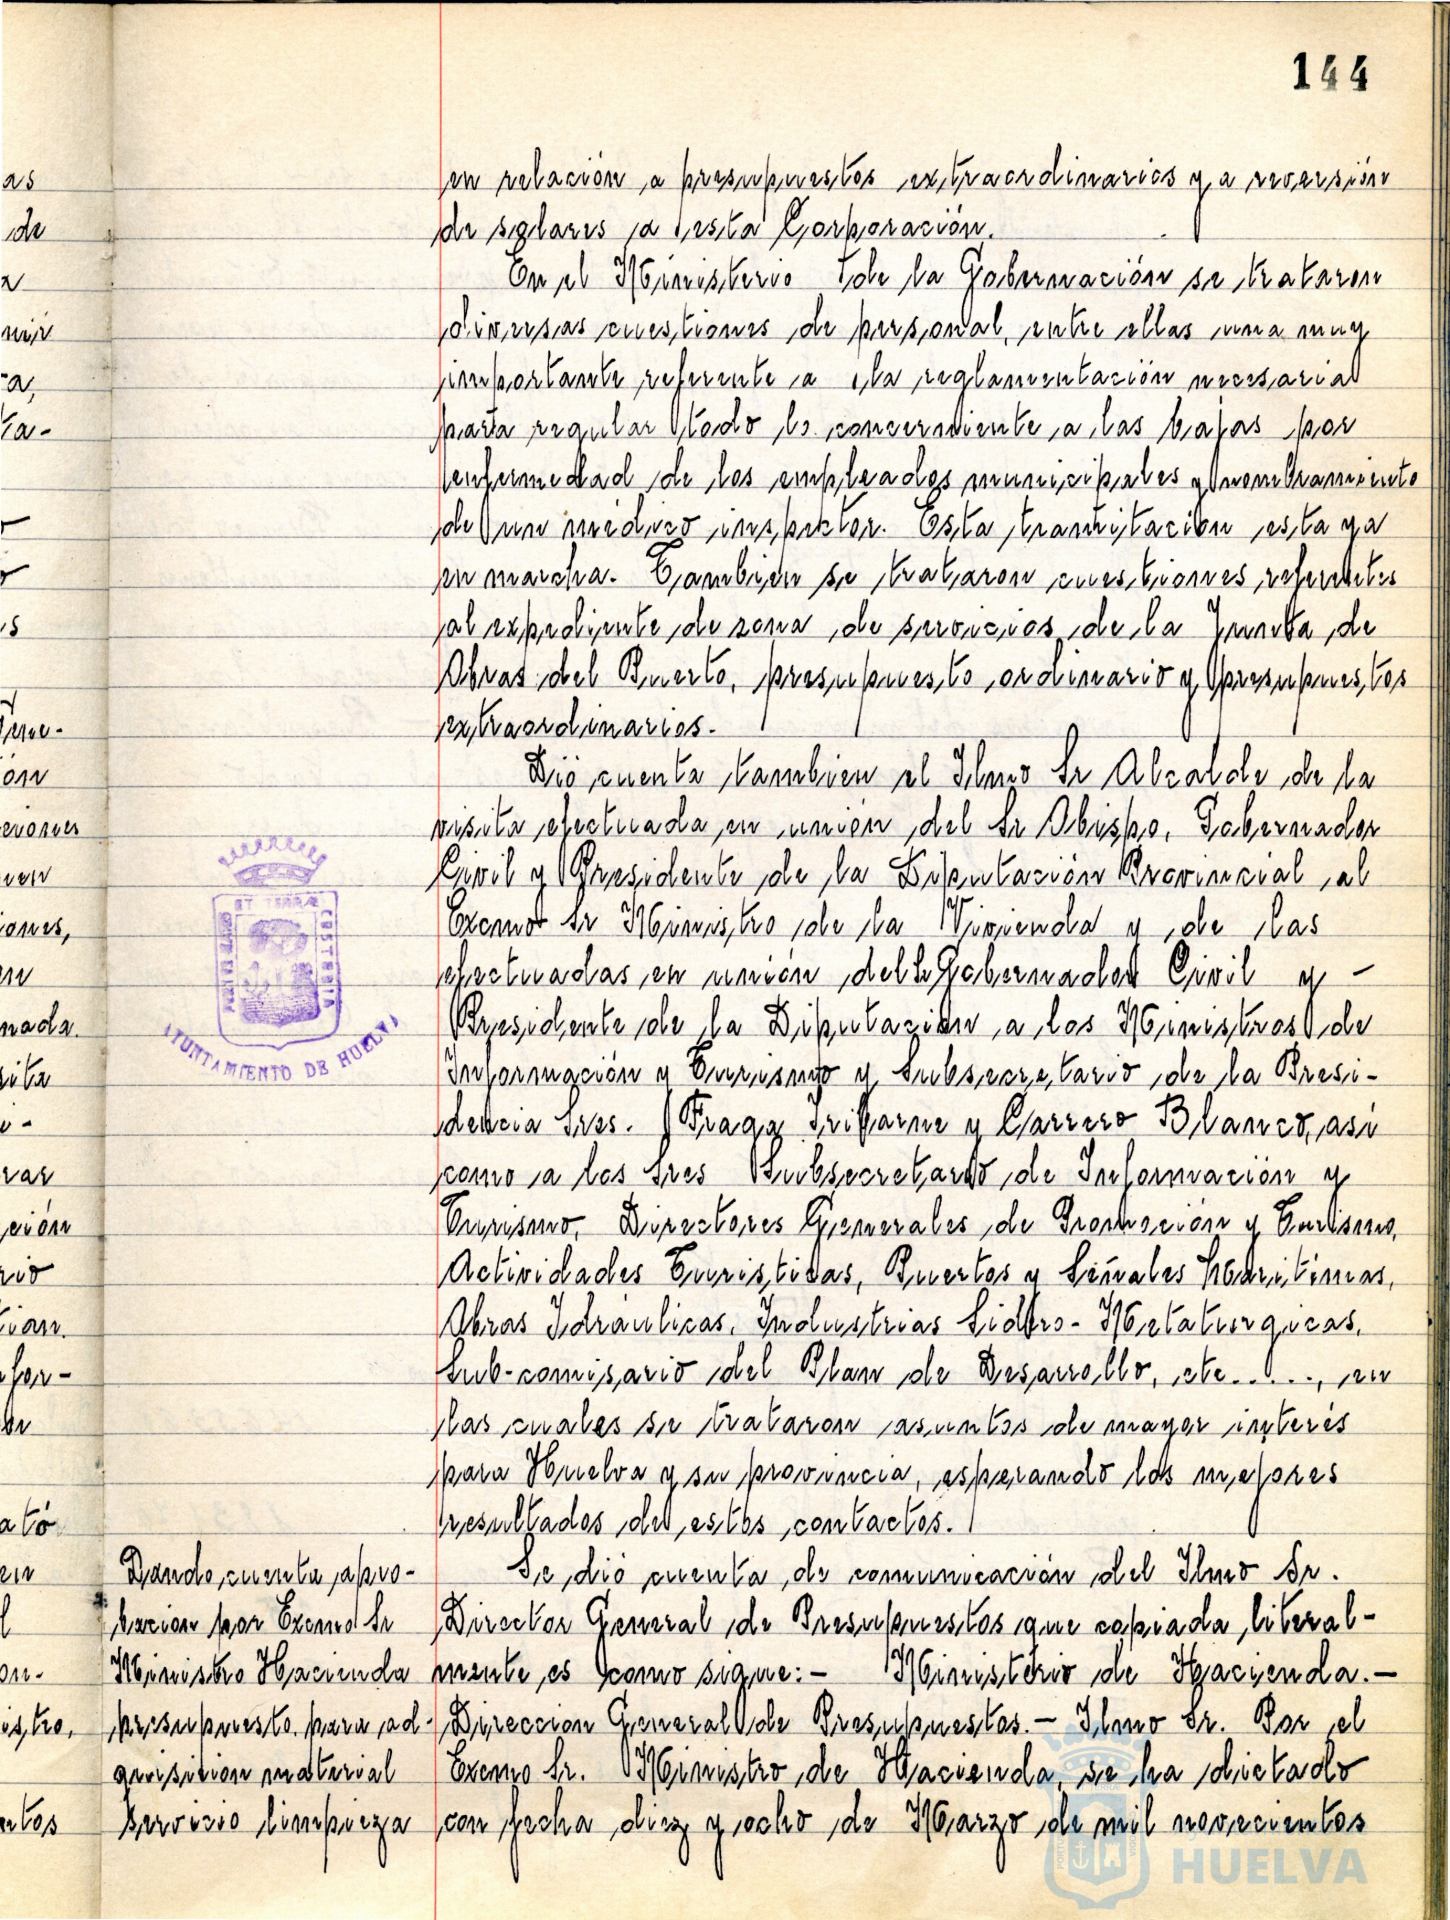 144
en relación a presupuestos extraordinarios y a reversión
de solares a esta Corporación.
En el Ministerio de la Gobernación se trataron
diversas cuestiones de personal, entre ellas una muy
importante referente a la reglamentación necesaria
para regular todo lo concerniente a las bajas por
enfermedad de los empleados municipales y nombramiento
de un médico inspector. Esta tramitación esta ya
en marcha. Tambien se trataron cuestiones referentes
al expediente de zona de servicios de la Junta de
Obras del Puerto, presupuesto ordinario y presupuestos
extraordinarios.
Dió cuenta tambien el Ilmo Sr Alcalde de la
visita efectuada en unión del Sr Obispo, Gobernador
Civil y Presidente de la Diputación Provincial al
Excmo Sr Ministro de la Vivienda y de las
efectuadas en unión del Gobernador Civil y -
Presidente de la Diputación a los Ministros de
Información y Turismo y Subsecretario de la Presi-
dencia Sres. Fraga Iribarne y Carrero Blanco, asi
como a los Sres Subsecretario de Información y
Turismo, Directores Generales de Promoción y Turismo,
Actividades Turisticas, Puertos y Señales Marítimas,
Obras Idráulicas, Industrias Sidero-Metalurgicas,
Sub-comisario del Plan de Desarrollo, etc....., en
las cuales se trataron asuntos de mayor interés
para Huelva y su provincia, esperando los mejores
resultados de estos contactos.
Se dió cuenta de comunicación del Ilmo Sr.
Director General de Presupuestos que copiada literal-
mente es como sigue:- Ministerio de Hacienda.-
Direccion General de Presupuestos.- Ilmo Sr. Por el
Excmo Sr. Ministro de Hacienda, se ha dictado
con fecha diez y ocho de Marzo de mil novecientos
Dando cuenta apro-
bacion por Excmo Sr
Ministro Hacienda
presupuesto para ad-
quisicion material
servicio limpieza
PORTUS MARIS
ET TERRAE
CUSTODIA
AYUNTAMIENTO DE HUELVA
as
de
a
mir
ta-
s
Tene-
ón
uen
iones,
en
nada
sita
rar
ción
rio
for-
ató
en
l
on-
istro,
ntos
HUELVA